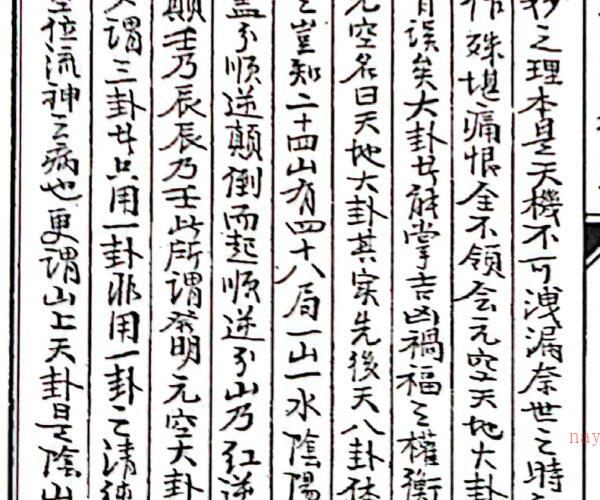 妙之理本是天機不可洩漏奈世之時
作殊堪痛恨全不領会元空天地大卦
自误矣大卦廿能掌吉凶禍福之權衡
元空名曰天地大卦其实先後天八卦体
之豈知二十四山有四十八局一山一水陰陽
盖分順逆顛倒而起順逆分山乃红逆
顛壬乃辰辰乃壬此所謂發明元空大卦
又謂三卦廿只用一卦非用一卦之清纯
空位流神之病也更謂山上天卦是陰山
nay